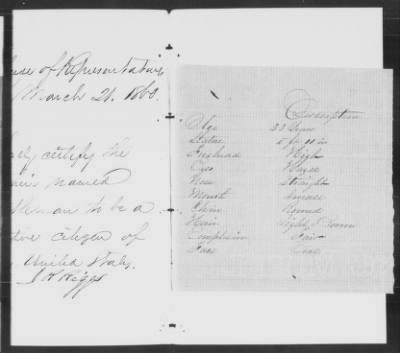 use of Representatives
March 21. 1860.
certify the
named
man to be a
tive citizen of
United States
Description
Age 33 Years
Statue 5 ft 11 in
Forehead High
Eyes Hazel
Nose Straight
Mouth
Chin Round
Hair Light Brown
Complexion Fair
Face Oval